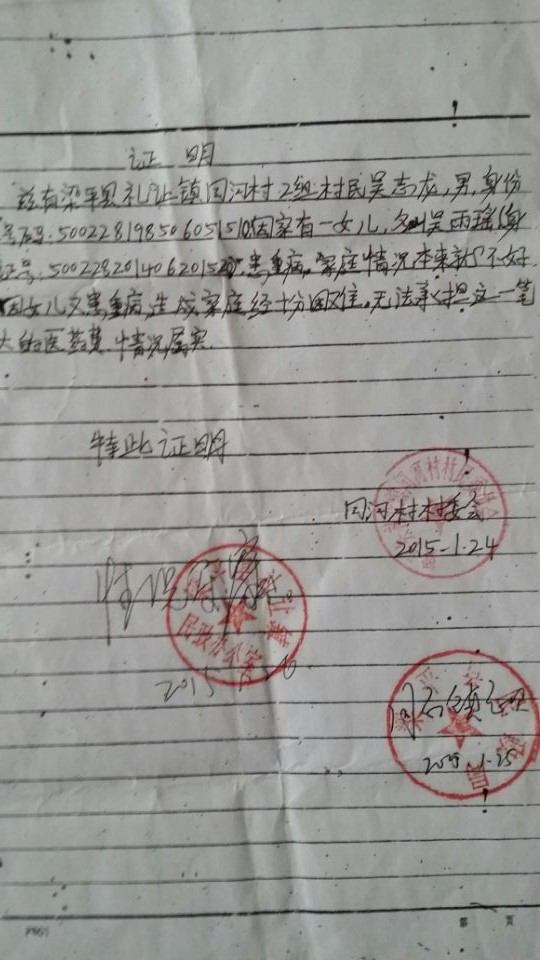 证 明
兹有梁平县礼让镇同河村2组村民吴志龙,男,身份
号码:500228198506051510因家有一女儿,名叫吴雨瑶(身
证号:500228201406201520,患重病。家庭情况本来就不好
因女儿又患重病,造成家庭经十分困难,无法承担这一笔
大的医药费,情况属实。
特此证明
同河村村委会
2015-1.24
情况属实
民政办公室
2015
1.25
第 页